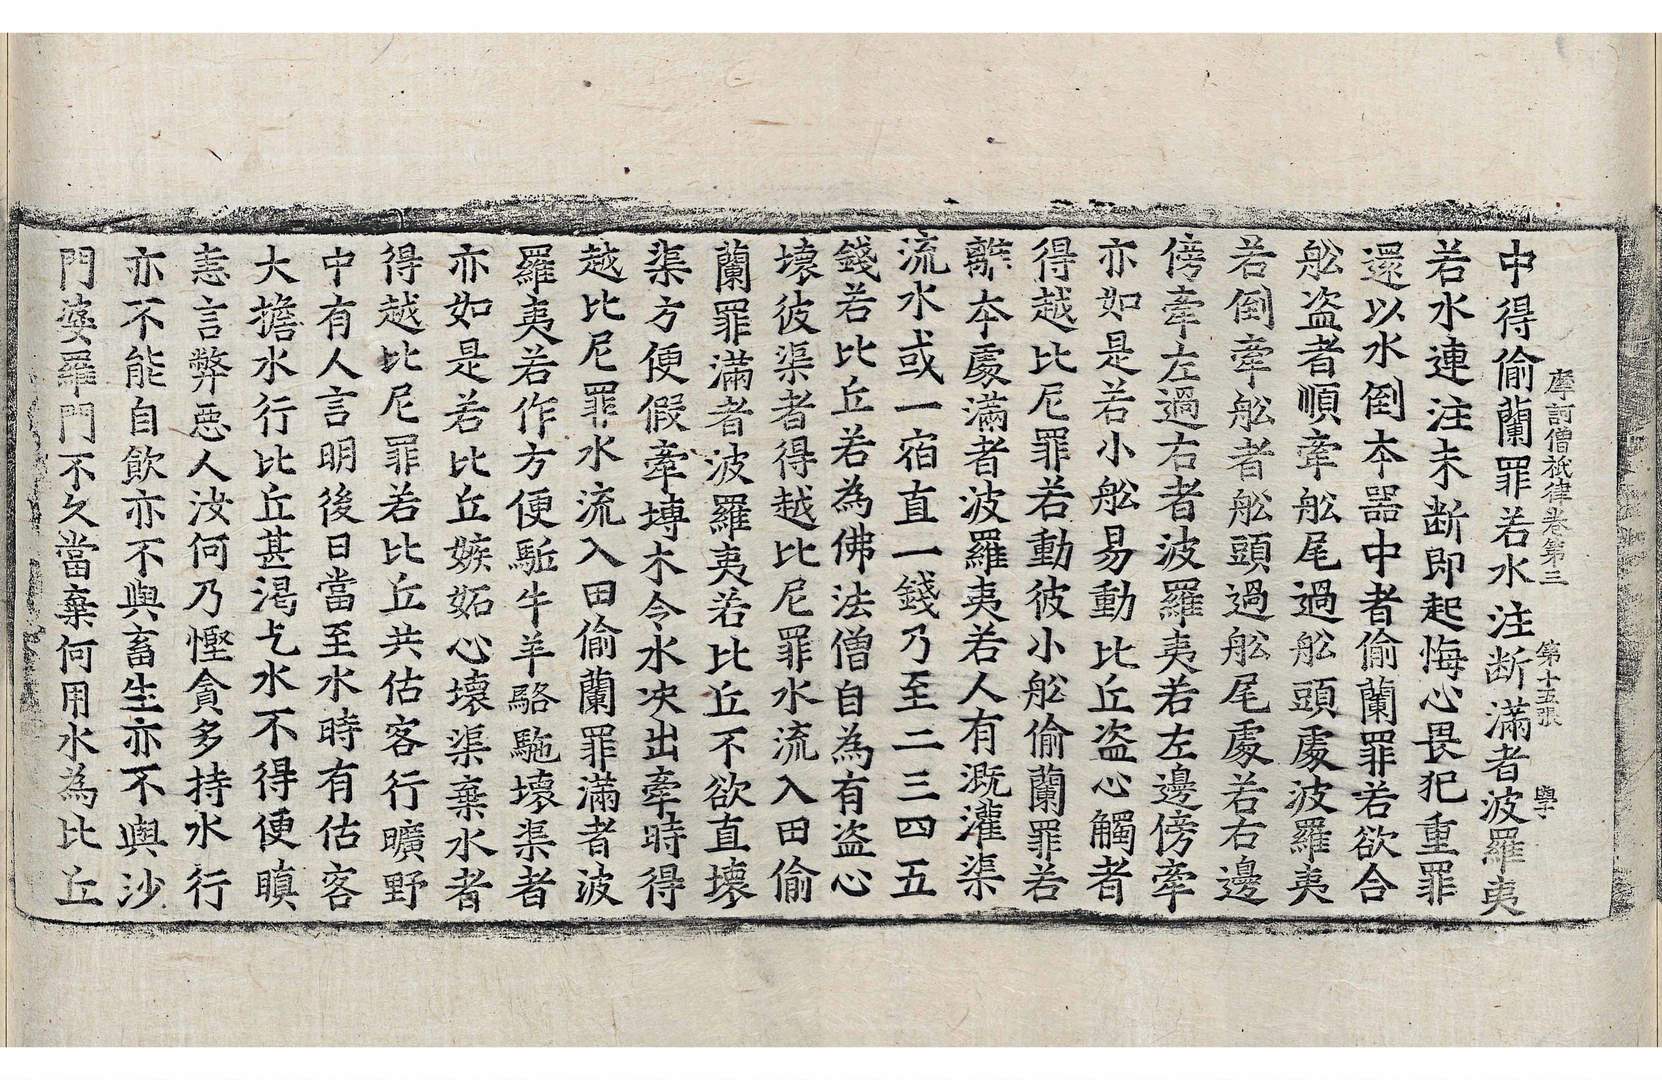 摩訶僧祇律卷第三 第十五張 學
中得偷蘭罪若水注斷滿者波羅夷
若水連注未断即起悔心畏犯重罪
還以水倒本器中者偷蘭罪若欲合
舩盗者順牽舩尾過舩頭處波羅夷
若倒牽舩者舩頭過舩尾處若右邊
傍牽左過右者波羅夷若左邊傍牽
亦如是若小舩易動比丘盗心觸者
得越比尼罪若動彼小舩偷蘭罪若
離本處滿者波羅夷若人有溉灌渠
流水或一宿直一錢乃至二三四五
錢若比丘若為佛法僧自為有盗心
壊彼渠者得越比尼罪水流入田偷
蘭罪滿者波羅夷若比丘不欲直壊
渠方便假牽塼木令水决出牽時得
越比尼罪水流入田偷蘭罪滿者波
羅夷若作方便駈牛羊駱駞壊渠者
亦如是若比丘嫉妬心壊渠棄水者
得越比尼罪若比丘共估客行曠野
中有人言明後日當至水時有估客
大擔水行比丘甚渴乞水不得便瞋
恚言弊惡人汝何乃慳貪多持水行
亦不能自飲亦不與畜生亦不與沙
門婆羅門不久當棄何用水為比丘